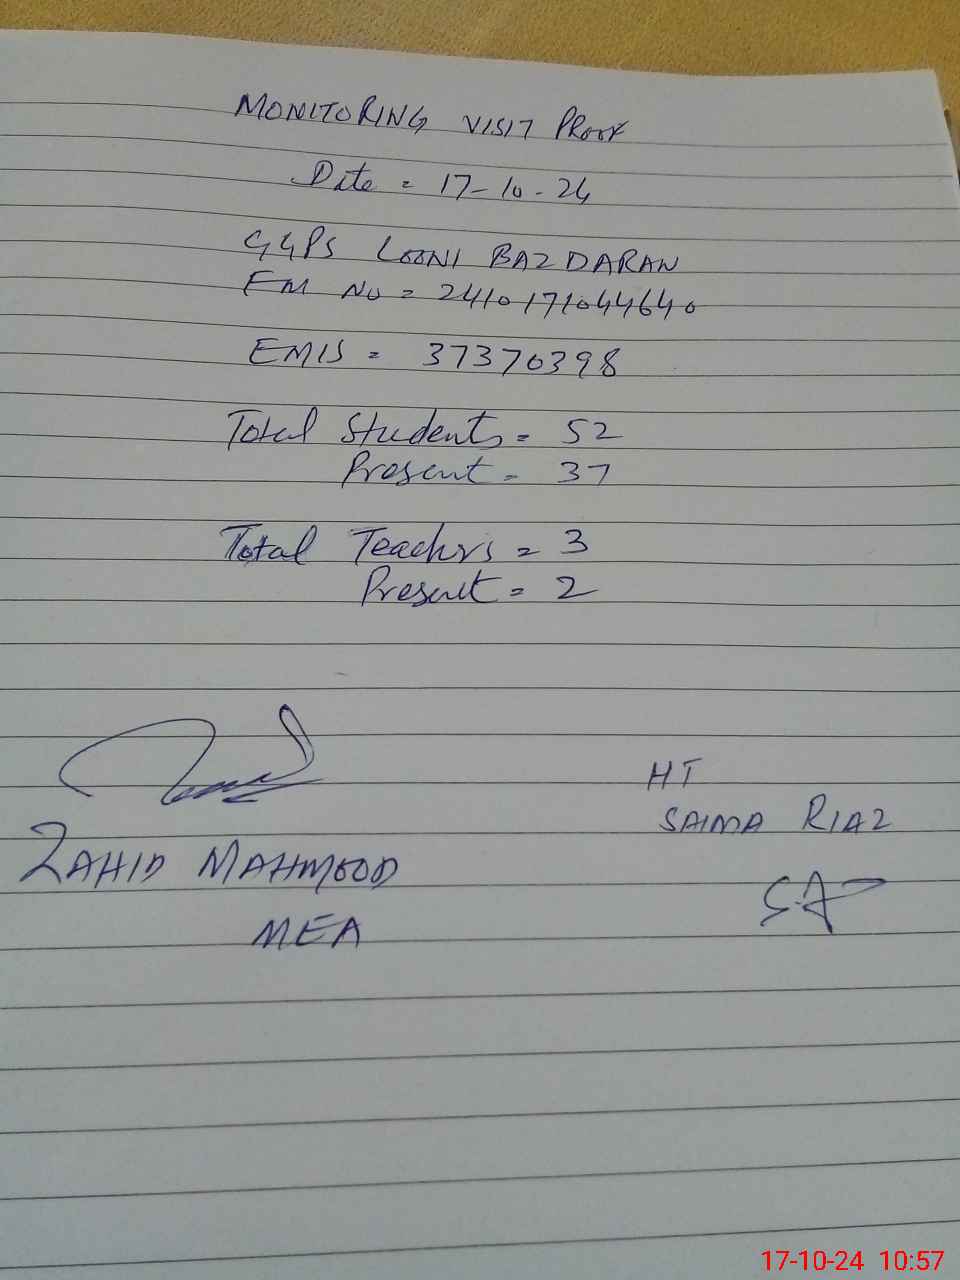 MONITORING VISIT PROOF
Date = 17-10-24
GGPS LOONI BAZDARAN
EM NO = 2410171044640
EMIS = 37370398
Total Students = 52
Present = 37
Total Teachrs = 3
Present = 2
HT
SAIMA RIAZ
ZAHID MAHMOOD
MEA
17-10-24 10:57